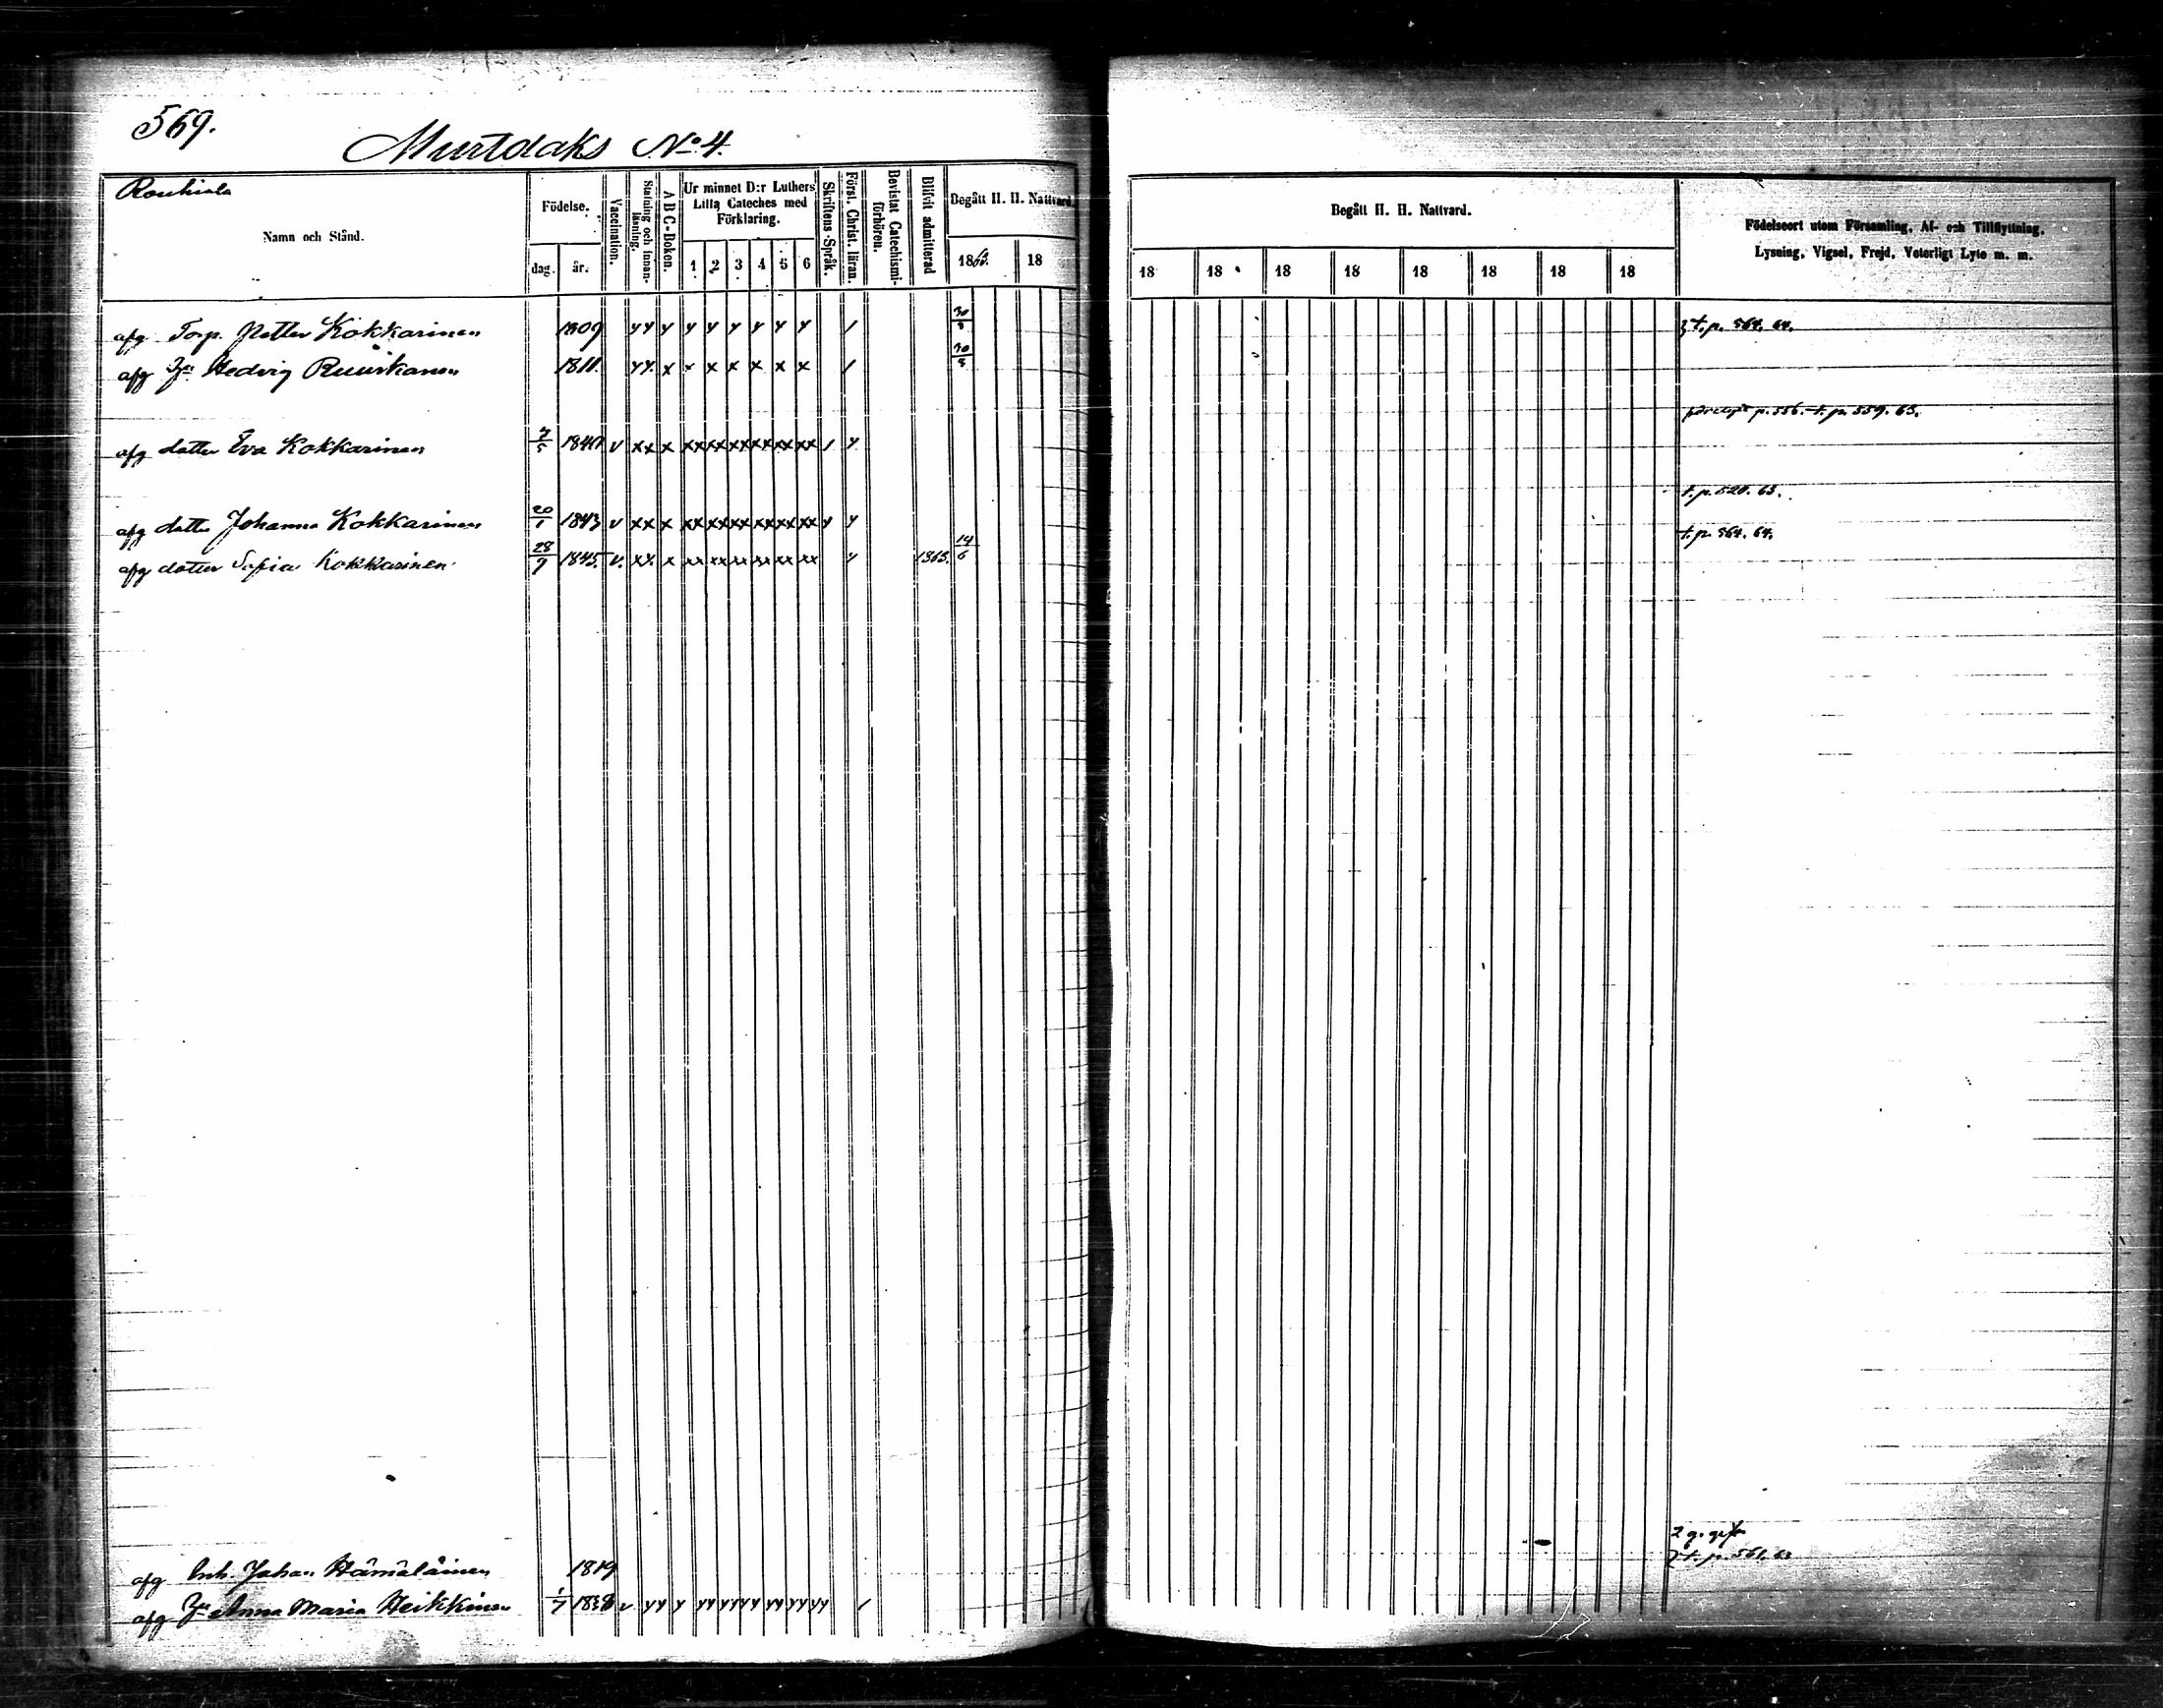 569.
Murtolaks No. 4.
Rouhiala
Namn och Stånd.
Födelse.
dag.
år.
Vaccination.
Stafning och innanläsning.
A B C-Boken.
Ur minnet D:r Luthers Lilla Cateches med Förklaring.
1 2 3 4 5 6
Skriftens Språk.
Förstl. Christ. läran.
Bevistat Catechismi-förhören.
Blifvit admitterad
Begått H. H. Nattvard.
1863.
18
Begått H. H. Nattvard.
18 18 18 18 18 18 18 18
Födelseort utom Församling, Af- och Tillflyttning, Lysning, Vigsel, Frejd, Veterligt Lyte m. m.
afg Torp. Petter Kokkarinen 1809 y y y y y y y y y / 30/8 t. p. 564. 64.
afg Hu Hedvig 1811. y y. x x x x x x x / 30/8
p. 556. t. p. 559. 63.
afg dotter Eva Kokkarinen 7/5 1840 v x x x xx xx xx xx xx xx / y
t. p. 520. 63.
afg dotter Johanna Kokkarinen 20/1 1843 v x x x xx xx xx xx xx xx y y
t. p. 564. 64.
afg dotter Sofia Kokkarinen 28/9 1845. v. x x. x xx xx xx xx xx xx y 1863. 14/6
2 g. gift
afg Inh. Johan Hämäläinen 1819 t. p. 561. 63
afg Hu Anna Maria Heikkinen 1/7 1838 v y y y yy yy yy yy yy yy /